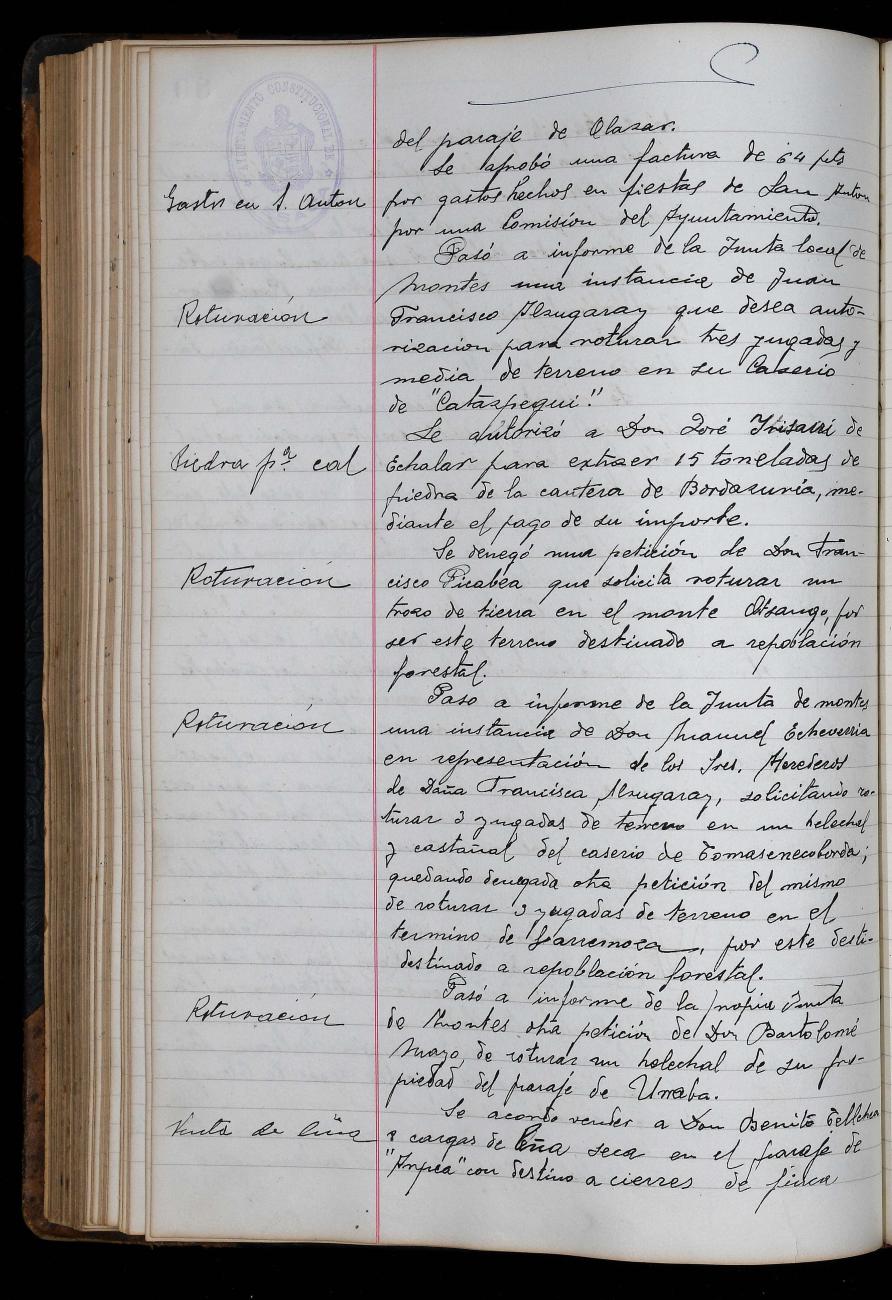 AYUNTAMIENTO CONSTITUCIONAL DE
del paraje de Olazar.
Se aprobó una factura de 64 pts
Gastos en S. Anton
por gastos hechos en fiestas de San Anton
por una Comisión del Ayuntamiento.
Pasó a informe de la Junta local de
Montes una instancia de Juan
Roturación
Francisco Alzugaray que desea auto-
rizacion para roturar tres yugadas y
media de terreno en su Caserio
de "Catazpegui."
Se autorizó a Don José Irisarri de
Piedra pª cal
Echalar para extraer 15 toneladas de
piedra de la cantera de Bordazuria, me-
diante el pago de su importe.
Se denegó una petición de Don Fran-
Roturación
cisco Picabea que solicita roturar un
trozo de tierra en el monte Otsango, por
ser este terreno destinado a repoblación
forestal.
Paso a informe de la Junta de montes
Roturación
una instancia de Don Manuel Echeverria
en representación de los Sres. Herederos
de Doña Francisca Alzugaray, solicitando ro-
turar 3 yugadas de terreno en un helechal
y castañal del caserio de Tomasenecoborda;
quedando denegada otra petición del mismo
de roturar 3 yugadas de terreno en el
termino de Larremoza, por este desti-
destinado a repoblación forestal.
Pasó a informe de la propia Junta
Roturación
de Montes otra petición de Don Bartolomé
Mazo, de roturar un helechal de su pro-
piedad del paraje de Unaba.
Se acordo vender a Don Benito Tellechea
Venta de leña
8 cargas de leña seca en el paraje de
con destino a cierres de finca